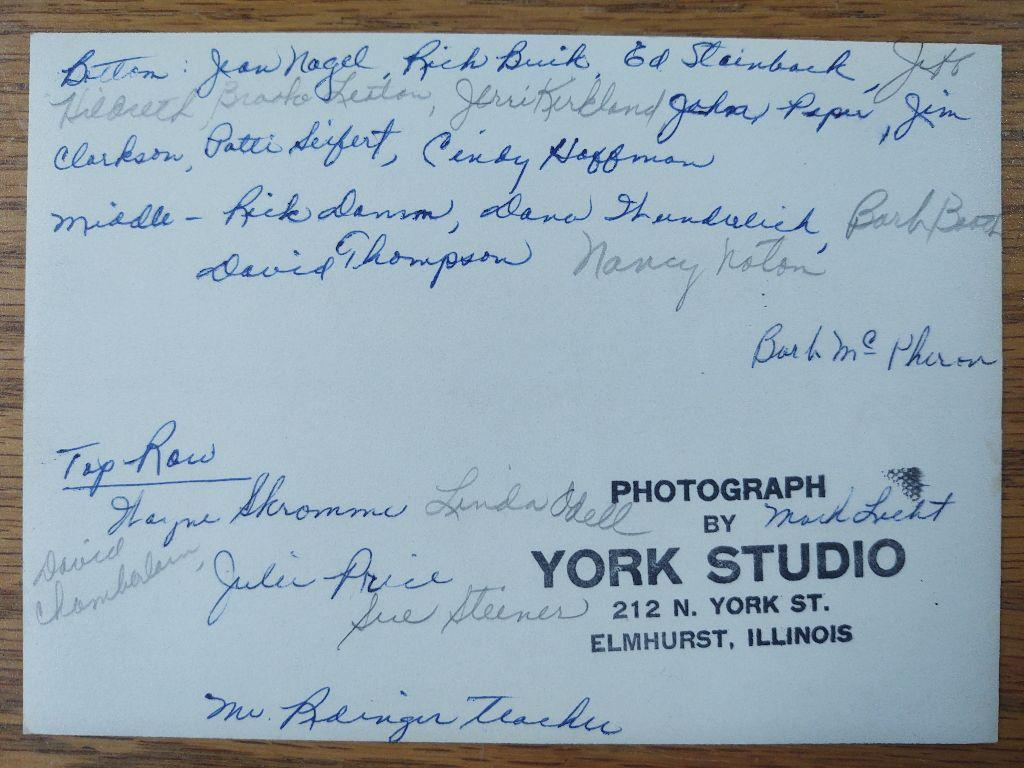 Bottom: Jean Nagel, Rich Buik, Ed Stainback, Jeff
Hildreth, Brooke Leston, Jerri Kirkland John Pape, Jim
Clarkson, Patti Seifert, Cindy Hoffman
Middle - Rick Damm, Dana Thunderlich, Barb Booth
David Thompson Nancy Noton
Barb McPheron
Top Row
Wayne Skromme Linda Odell
David
Chamberlain,
Julie Price
Sue Steiner
PHOTOGRAPH
BY Mark Lucht
YORK STUDIO
212 N. YORK ST.
ELMHURST, ILLINOIS
Mr. teacher